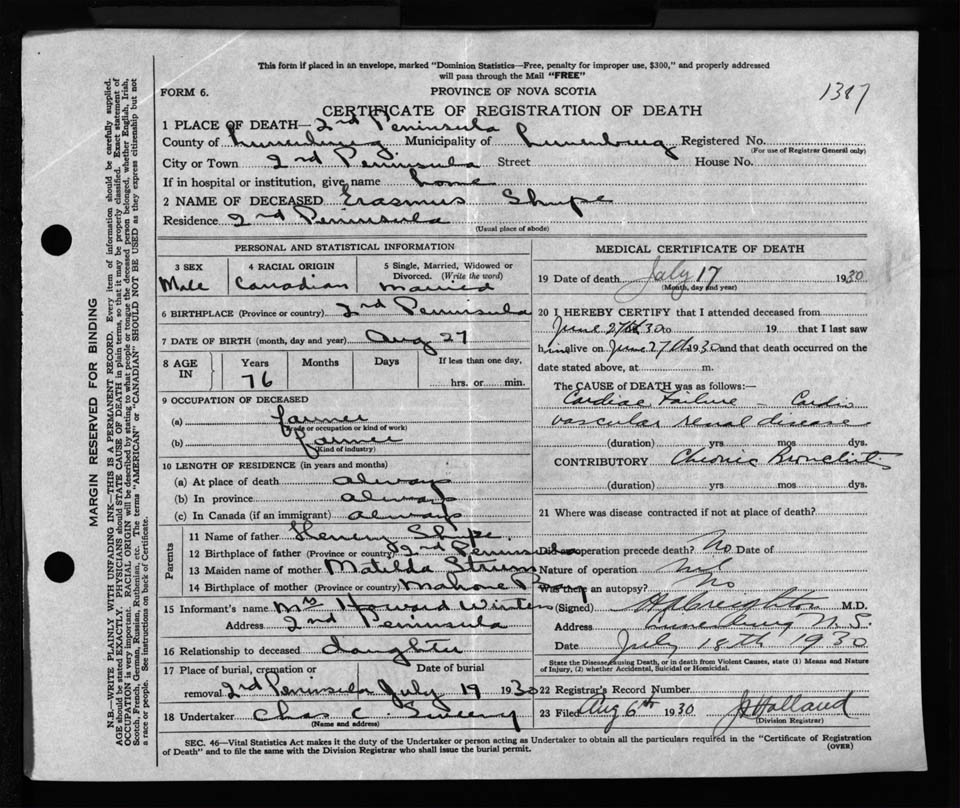 This form if placed in an envelope, marked "Dominion Statistics—Free, penalty for improper use, $300," and properly addressed
will pass through the Mail "FREE"
FORM 6. PROVINCE OF NOVA SCOTIA 1317
CERTIFICATE OF REGISTRATION OF DEATH
1 PLACE OF DEATH— 2nd Peninsula
County of Lunenburg Municipality of Lunenburg Registered No.
(For use of Registrar General only)
City or Town 2nd Peninsula Street House No.
If in hospital or institution, give name home
2 NAME OF DECEASED Erasmus Shupe
Residence 2nd Peninsula
(Usual place of abode)
PERSONAL AND STATISTICAL INFORMATION
3 SEX 4 RACIAL ORIGIN 5 Single, Married, Widowed or
Divorced. (Write the word)
Male Canadian Married
6 BIRTHPLACE (Province or country) 2nd Peninsula
7 DATE OF BIRTH (month, day and year) Aug 27
8 AGE IN Years Months Days If less than one day,
76 hrs. or min.
9 OCCUPATION OF DECEASED
(a) farmer
(Trade or occupation or kind of work)
(b) farmer
(Kind of industry)
10 LENGTH OF RESIDENCE (in years and months)
(a) At place of death always
(b) In province always
(c) In Canada (if an immigrant) always
Parents
11 Name of father Henry Shupe
12 Birthplace of father (Province or country) 2nd Peninsula
13 Maiden name of mother Matilda Strum
14 Birthplace of mother (Province or country) Mahone Bay
15 Informant's name Mrs Howard Winters
Address 2nd Peninsula
16 Relationship to deceased daughter
17 Place of burial, cremation or Date of burial
removal 2rd Peninsula July 19 1930
18 Undertaker Chas C. Sweeny
(Name and address)
MEDICAL CERTIFICATE OF DEATH
19 Date of death July 17 1930
(Month, day and year)
20 I HEREBY CERTIFY that I attended deceased from
June 27th 30 to 19 that I last saw
him alive on June 27th 1930 and that death occurred on the
date stated above, at m.
The CAUSE OF DEATH was as follows:—
Cardiac Failure – Cardio
vascular renal disease
(duration) yrs mos dys.
CONTRIBUTORY Chronic Bronchitis
(duration) yrs. mos. dys.
21 Where was disease contracted if not at place of death?
Did operation precede death? No Date of
Nature of operation Nil
Was there an autopsy? No
(Signed) Creighton M.D.
Address Lunenburg N.S.
Date July 18th 1930
State the Disease causing Death, or in death from Violent Causes, state (1) Means and Nature
of Injury, (2) whether Accidental, Suicidal or Homicidal.
22 Registrar's Record Number
23 Filed Aug 6th 1930 J Holland
(Division Registrar)
SEC. 46—Vital Statistics Act makes it the duty of the Undertaker or person acting as Undertaker to obtain all the particulars required in the "Certificate of Registration
of Death" and to file the same with the Division Registrar who shall issue the burial permit. (OVER)
MARGIN RESERVED FOR BINDING
N.B.—WRITE PLAINLY WITH UNFADING INK—THIS IS A PERMANENT RECORD. Every item of information should be carefully supplied.
AGE should be stated EXACTLY. PHYSICIANS should STATE CAUSE OF DEATH in plain terms, so that it may be properly classified. Exact statement of
OCCUPATION is very important. RACIAL ORIGIN will be described by stating to what people or tongue the deceased person belonged, whether English, Irish,
Scotch, French, German, Russian, Ruthenian, etc. The terms "AMERICAN" or "CANADIAN" SHOULD NOT BE USED as they express citizenship but not
a race or people. See instructions on back of Certificate.